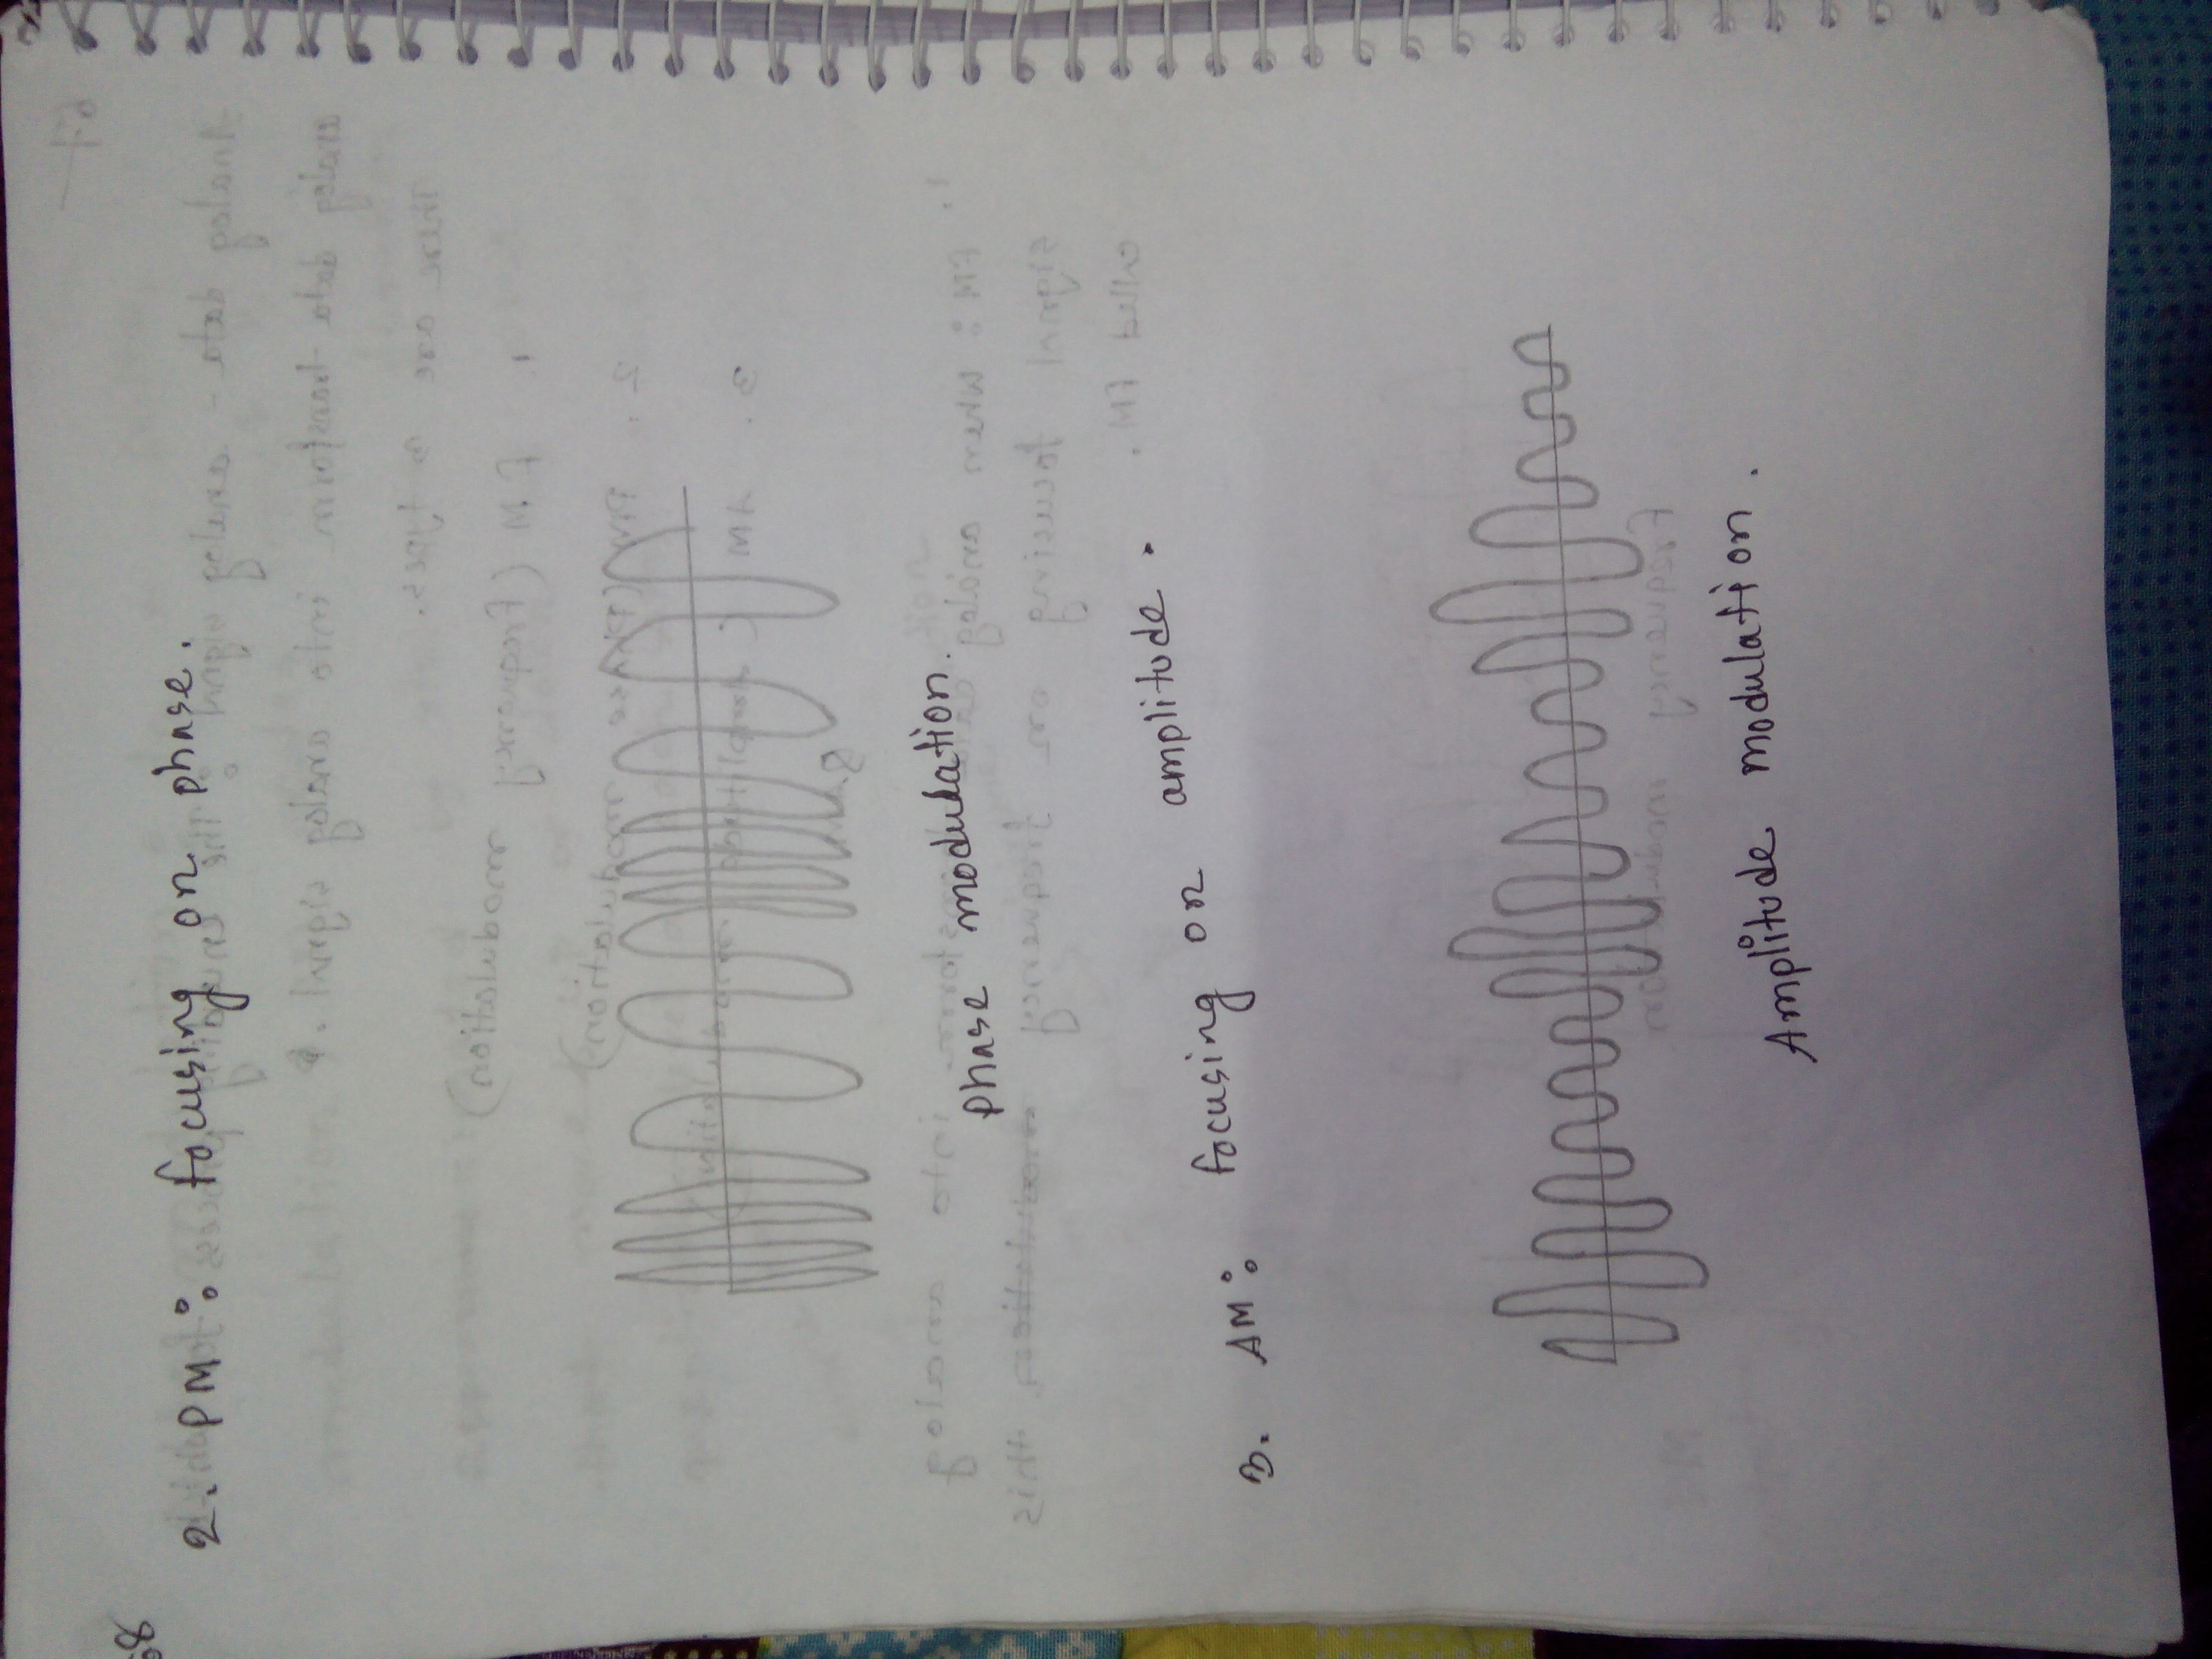 68
2. PM: focusing on phase.
phase modulation.
3. AM: focusing on amplitude.
Amplitude modulation.